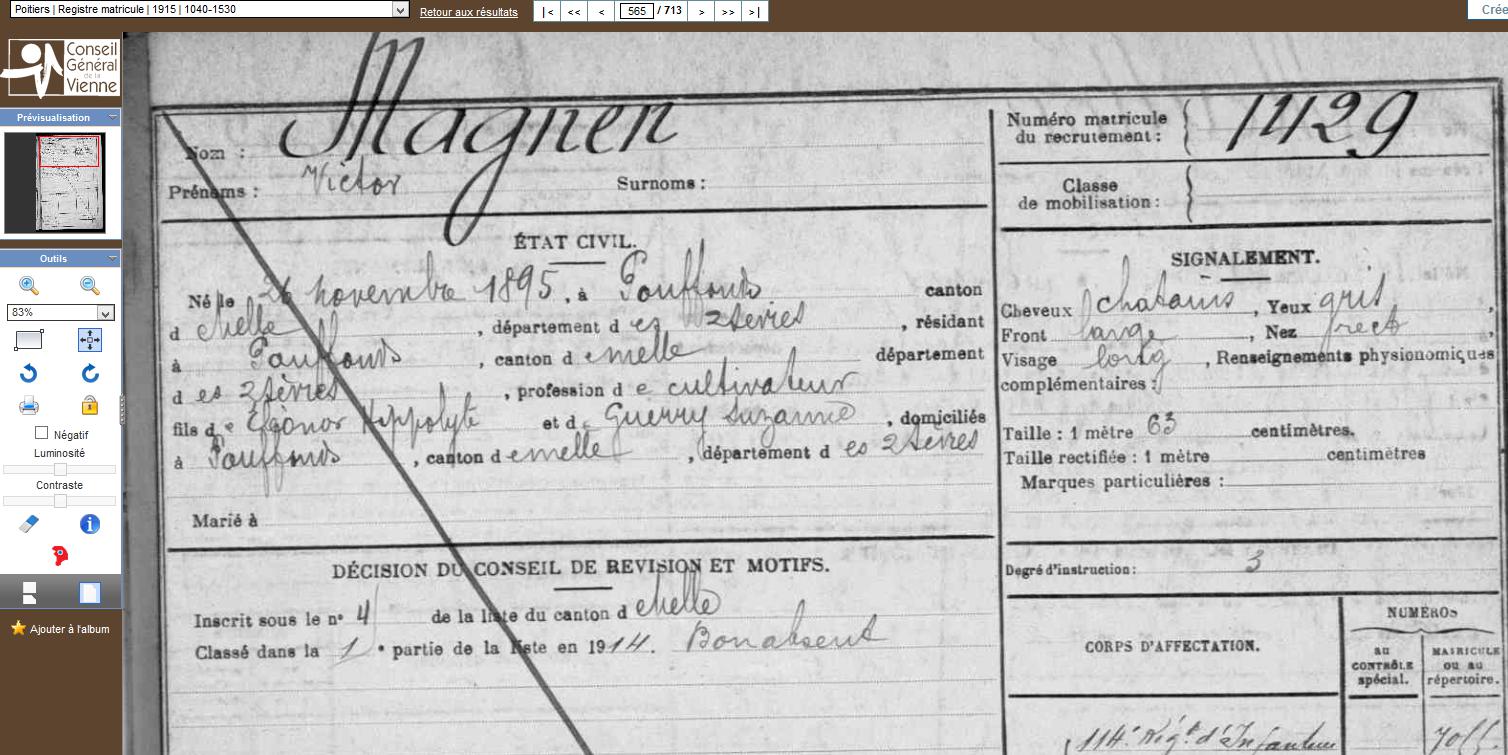 Poitiers | Registre matricule | 1915 | 1040-1530
Retour aux résultats
|< << < 565 / 713 > >> >|
Crée
Conseil
Général
de la
Vienne
Prévisualisation
Outils
83%
Négatif
Luminosité
Contraste
Ajouter à l'album
Nom : Magnen
Prénoms : Victor Surnoms :
Numéro matricule
du recrutement : 1429
Classe
de mobilisation :
ÉTAT CIVIL.
Né le 26 novembre 1895, à Pouffonds canton
d e Melle, département d es 2 Sèvres, résidant
à Pouffonds, canton d e Melle département
d es 2 Sèvres, profession d e cultivateur
fils d e Eléonor Hippolyte et d e Guerry Suzanne, domiciliés
à Pouffonds, canton d e Melle, département d es 2 Sèvres
Marié à
SIGNALEMENT.
Cheveux chatains, Yeux gris,
Front large, Nez rect
Visage long, Renseignements physionomiques
complémentaires :
Taille : 1 mètre 63 centimètres.
Taille rectifiée : 1 mètre centimètres
Marques particulières :
Degré d'instruction : 3
DÉCISION DU CONSEIL DE REVISION ET MOTIFS.
Inscrit sous le n° 4 de la liste du canton d e Melle
Classé dans la 1 e partie de la liste en 1914. Bon absent
CORPS D'AFFECTATION.
NUMÉROS
au
CONTRÔLE
spécial.
MATRICULE
ou au
répertoire.
114e Régt d'Infanterie